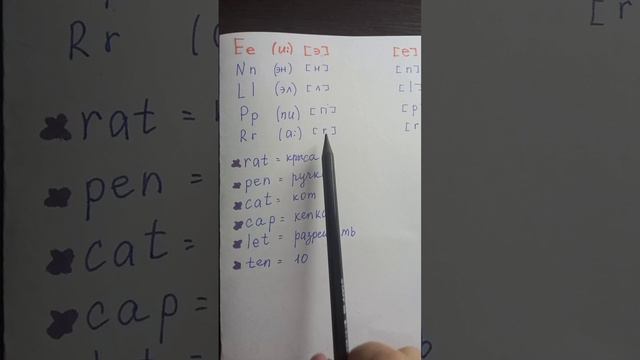 Ee (и:) [э] [e]
Nn (эн) [н] [n]
Ll (эл) [л] [l]
Pp (пи) [п] [p
Rr (а:) [r] [r
rat = крыса
pen = ручка
cat = кот
cap = кепка
let = разрешить
ten = 10